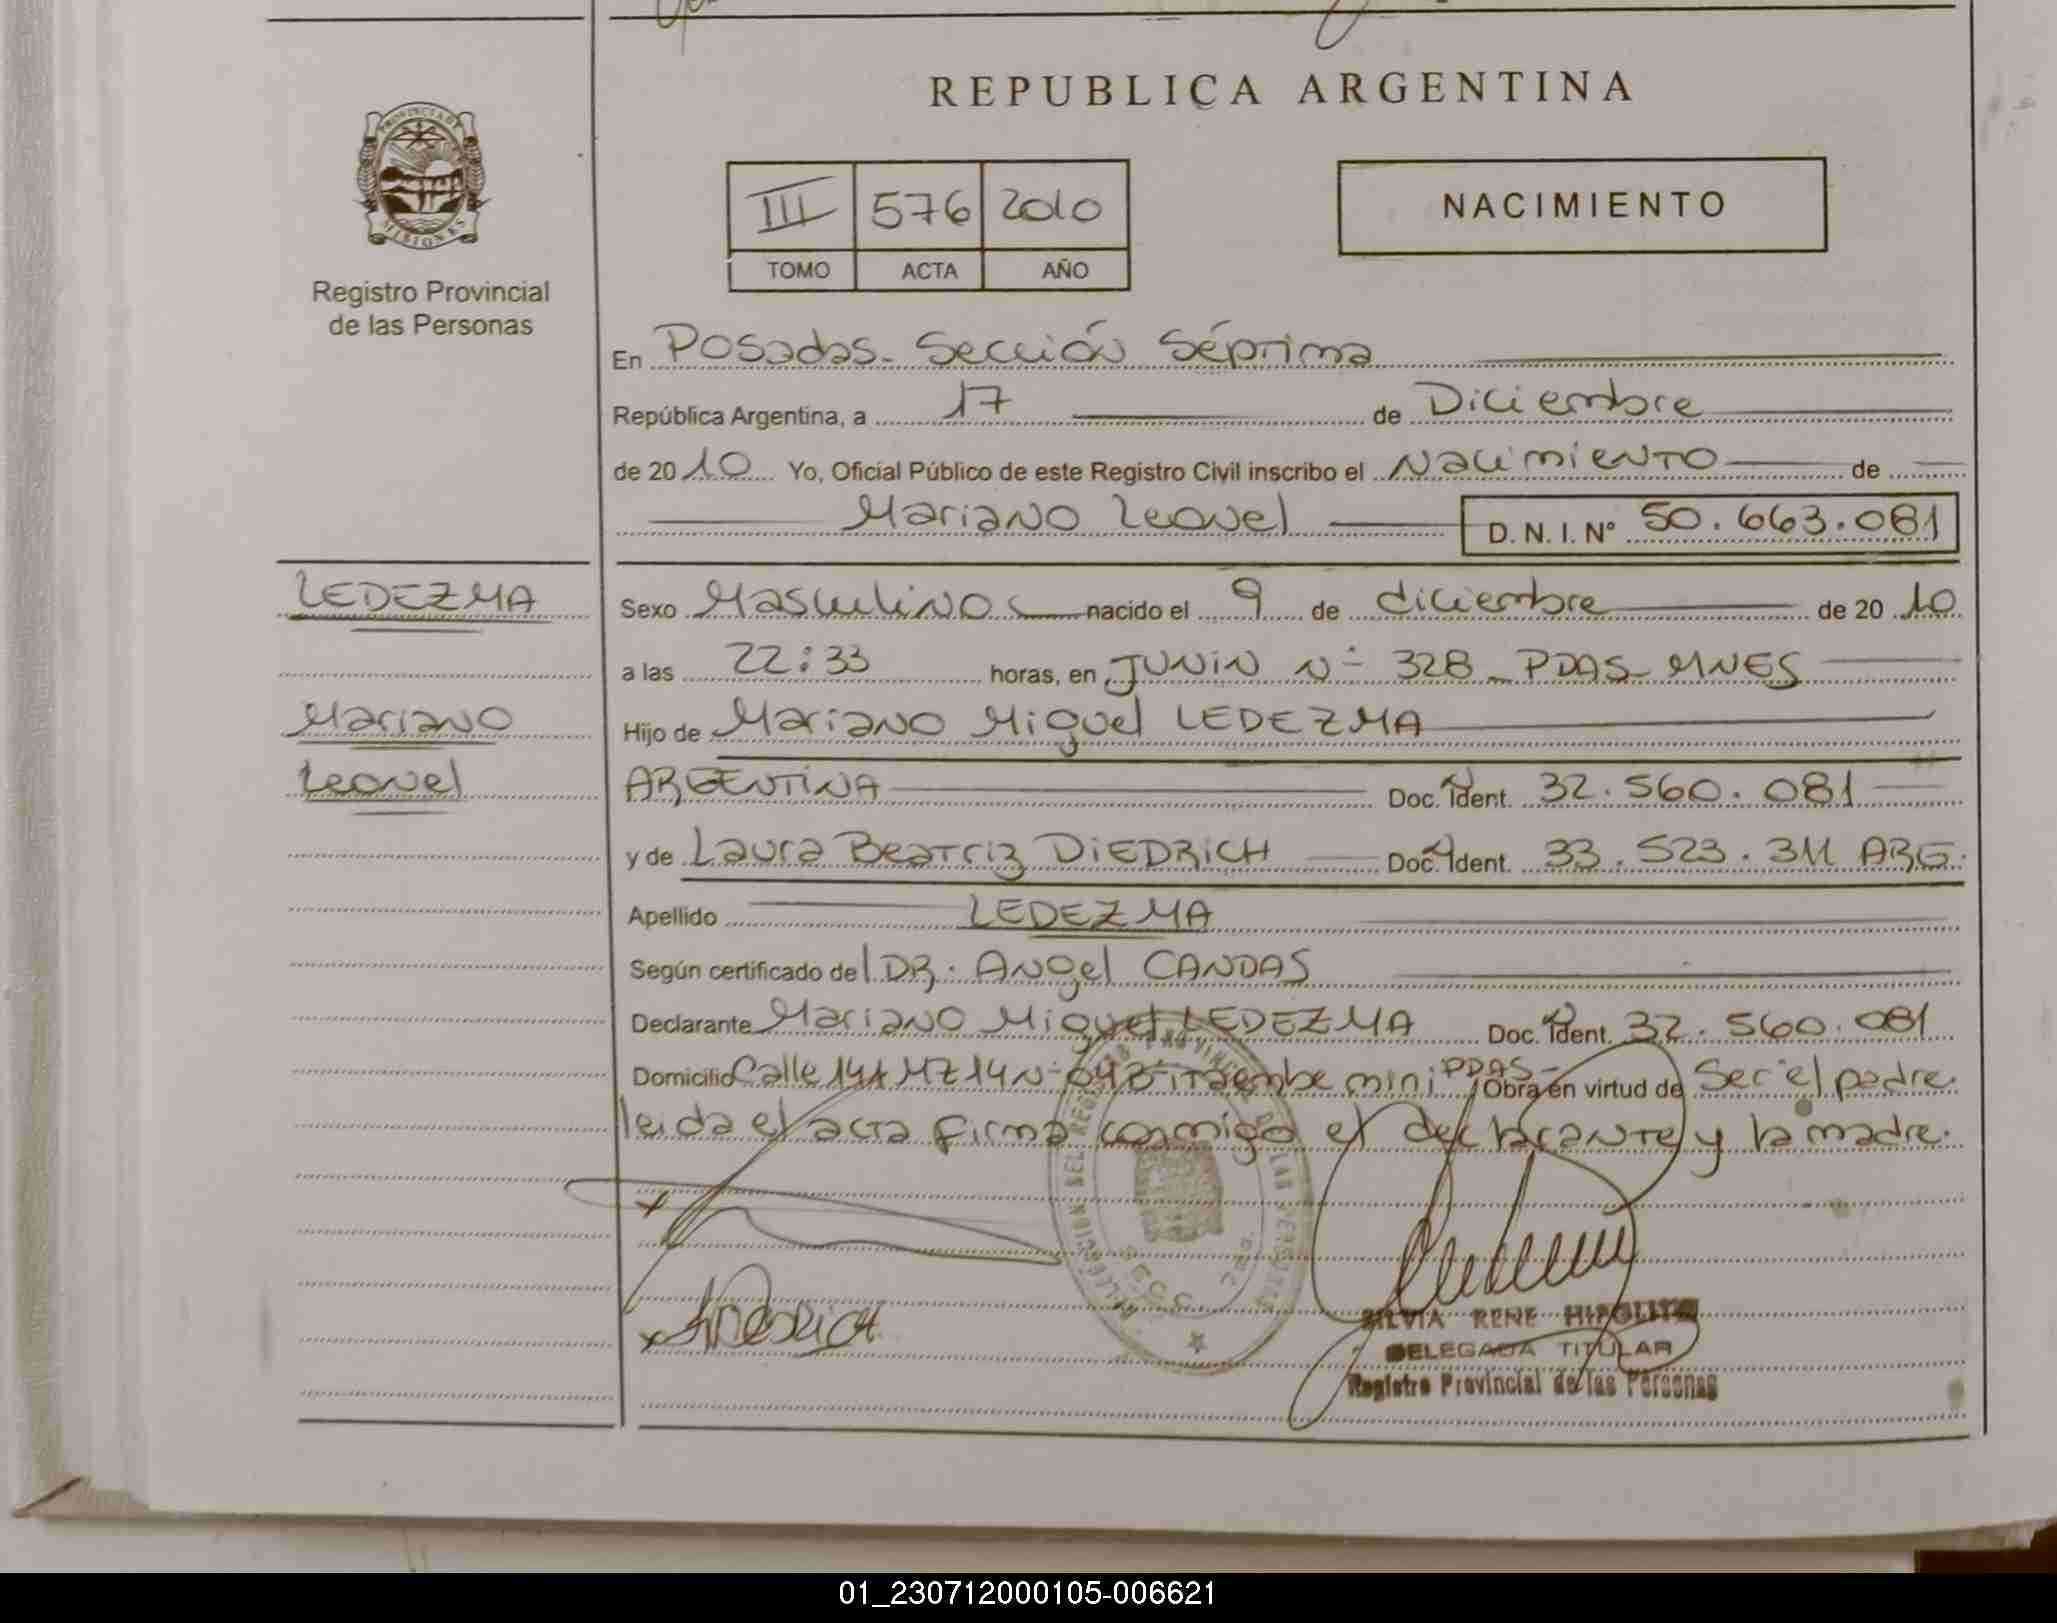 REPUBLICA ARGENTINA
PROVINCIA DE
MISIONES
Registro Provincial
de las Personas
III 576 2010
TOMO ACTA AÑO
NACIMIENTO
En Posadas - Sección Séptima
República Argentina, a 17 de Diciembre
de 2010 Yo, Oficial Público de este Registro Civil inscribo el Nacimiento de
Mariano Leonel D. N. I. Nº 50.663.081
LEDEZMA
Mariano
Leonel
Sexo Masculino nacido el 9 de diciembre de 2010
a las 22:33 horas, en JUNIN Nº 328 - PDAS - MNES
Hijo de Mariano Miguel LEDEZMA
ARGENTINA Doc. Ident. 32.560.081
y de Laura Beatriz DIEDRICH Doc. Ident. 33.523.311 ARG.
Apellido LEDEZMA
Según certificado del DR. Angel CANDAS
Declarante Mariano Miguel LEDEZMA Doc. Ident. 32.560.081
Domicilio Calle MZ itaembe mini PDAS - Obra en virtud de Ser el padre.
leida el acta firma conmigo el declarante y la madre.
SILVIA RENE HIPOLITO
DELEGADA TITULAR
Registro Provincial de las Personas
01_230712000105-006621